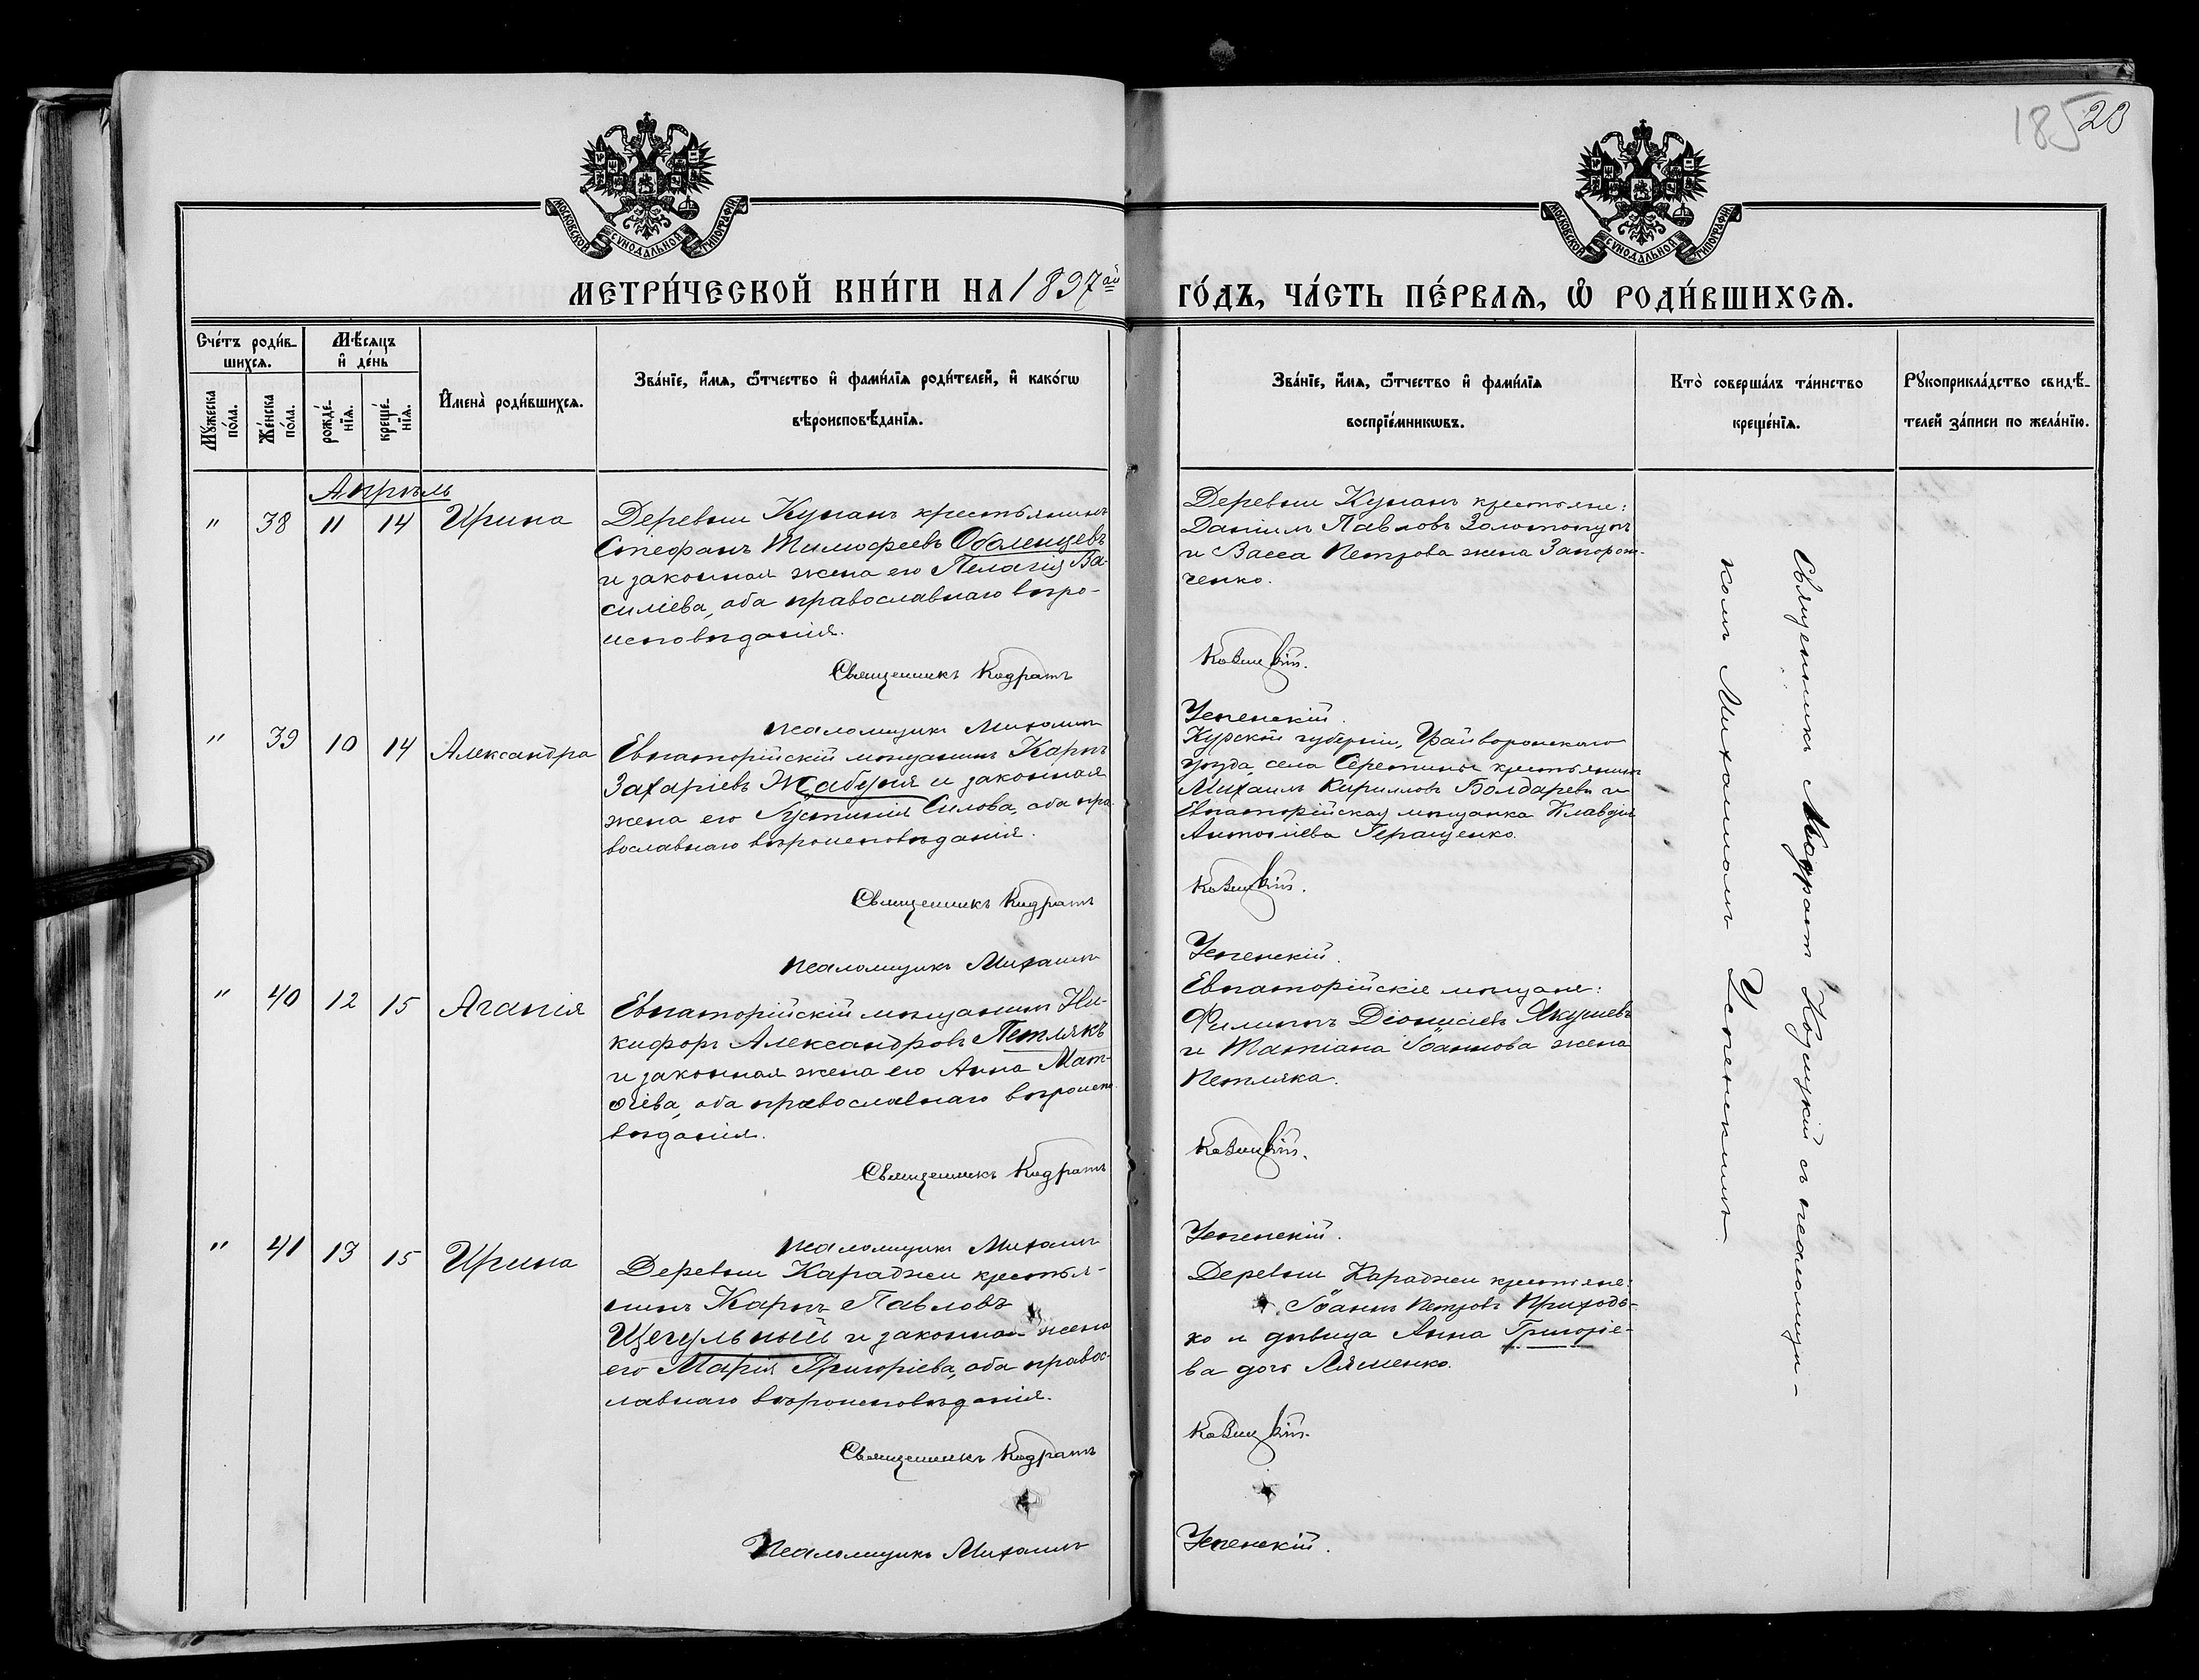 185 23
МОСКОВСКОЙ СѴНОДАЛЬНОЙ ТИПОГРАФІИ
МОСКОВСКОЙ СѴНОДАЛЬНОЙ ТИПОГРАФІИ
МЕТРИ́ЧЕСКОЙ КНИ́ГИ НА 1897ой
ГО́ДЪ, ЧА́СТЬ ПЕ́РВАѦ, Ѡ҆ РОДИ́ВШИХСѦ.
Сче́тъ роди́в-
шихсѧ.
Мꙋ́жеска по́ла.
Же́нска по́ла.
Мѣ́сѧцъ
и҆ де́нь
рожде́-
нїѧ.
креще́-
нїѧ.
И҆мена̀ роди́вшихсѧ.
Зва́нїе, и҆́мѧ, ѻ҆́тчество и҆ фами́лїѧ роди́телей, и҆ како́гѡ
вѣроисповѣ́данїѧ.
Зва́нїе, и҆́мѧ, ѻ҆́тчество и҆ фами́лїѧ
воспрїе́мникѡвъ.
Кто̀ соверша́лъ та́инство
креще́нїѧ.
Рꙋкоприкла́дство свидѣ́-
телей за́писи по жела́нїю.
Апрѣль
" 38 11 14 Ирина
Деревни Кунанъ крестьянинъ
Стефанъ Тимофеевъ Оболенцевъ
и законная жена его Пелагія Ва-
силіева, оба православнаго вѣро-
исповѣданія.
Священникъ Кодратъ
Псаломщикъ Михаилъ
Деревни Кунанъ крестьяне:
Даніилъ Павловъ Золотопупъ
и Васса Петрова жена Запорож-
ченко.
Успенскій.
" 39 10 14 Александра
Евпаторійскій мѣщанинъ Карпъ
Захаріевъ Жабуня и законная
жена его Іустинія Силова, оба пра-
вославнаго вѣроисповѣданія.
Священникъ Кодратъ
Псаломщикъ Михаилъ
Курской губерніи, Грайворонскаго
уѣзда, села крестьянинъ
Михаилъ Кирилловъ Болдаревъ и
Евпаторійская мѣщанка Клавдія
Антоніева Геращенко.
Успенскій.
" 40 12 15 Агапія
Евпаторійскій мѣщанинъ Ни-
кифоръ Александровъ Петлякъ
и законная жена его Анна Мат-
ѳіева, оба православнаго вѣроиспо-
вѣданія.
Священникъ Кодратъ
Псаломщикъ Михаилъ
Евпаторійскіе мѣщане:
Филиппъ Діонисіевъ Якушевъ
и Татіана Іоаннова жена
Петляка.
Успенскій.
" 41 13 15 Ирина
Деревни Караджи крестья-
нинъ Карпъ Павловъ
Щегульный и законная жена
его Марія Григоріева, оба правос-
лавнаго вѣроисповѣданія.
Священникъ Кодратъ
Псаломщикъ Михаилъ
Деревни Караджи крестьяне:
Іоаннъ Петровъ Приходь-
ко и дѣвица Анна Григоріе-
ва дочь Ляменко.
Успенскій.
Священникъ Кодратъ съ псаломщи-
комъ Михаиломъ Успенскимъ.